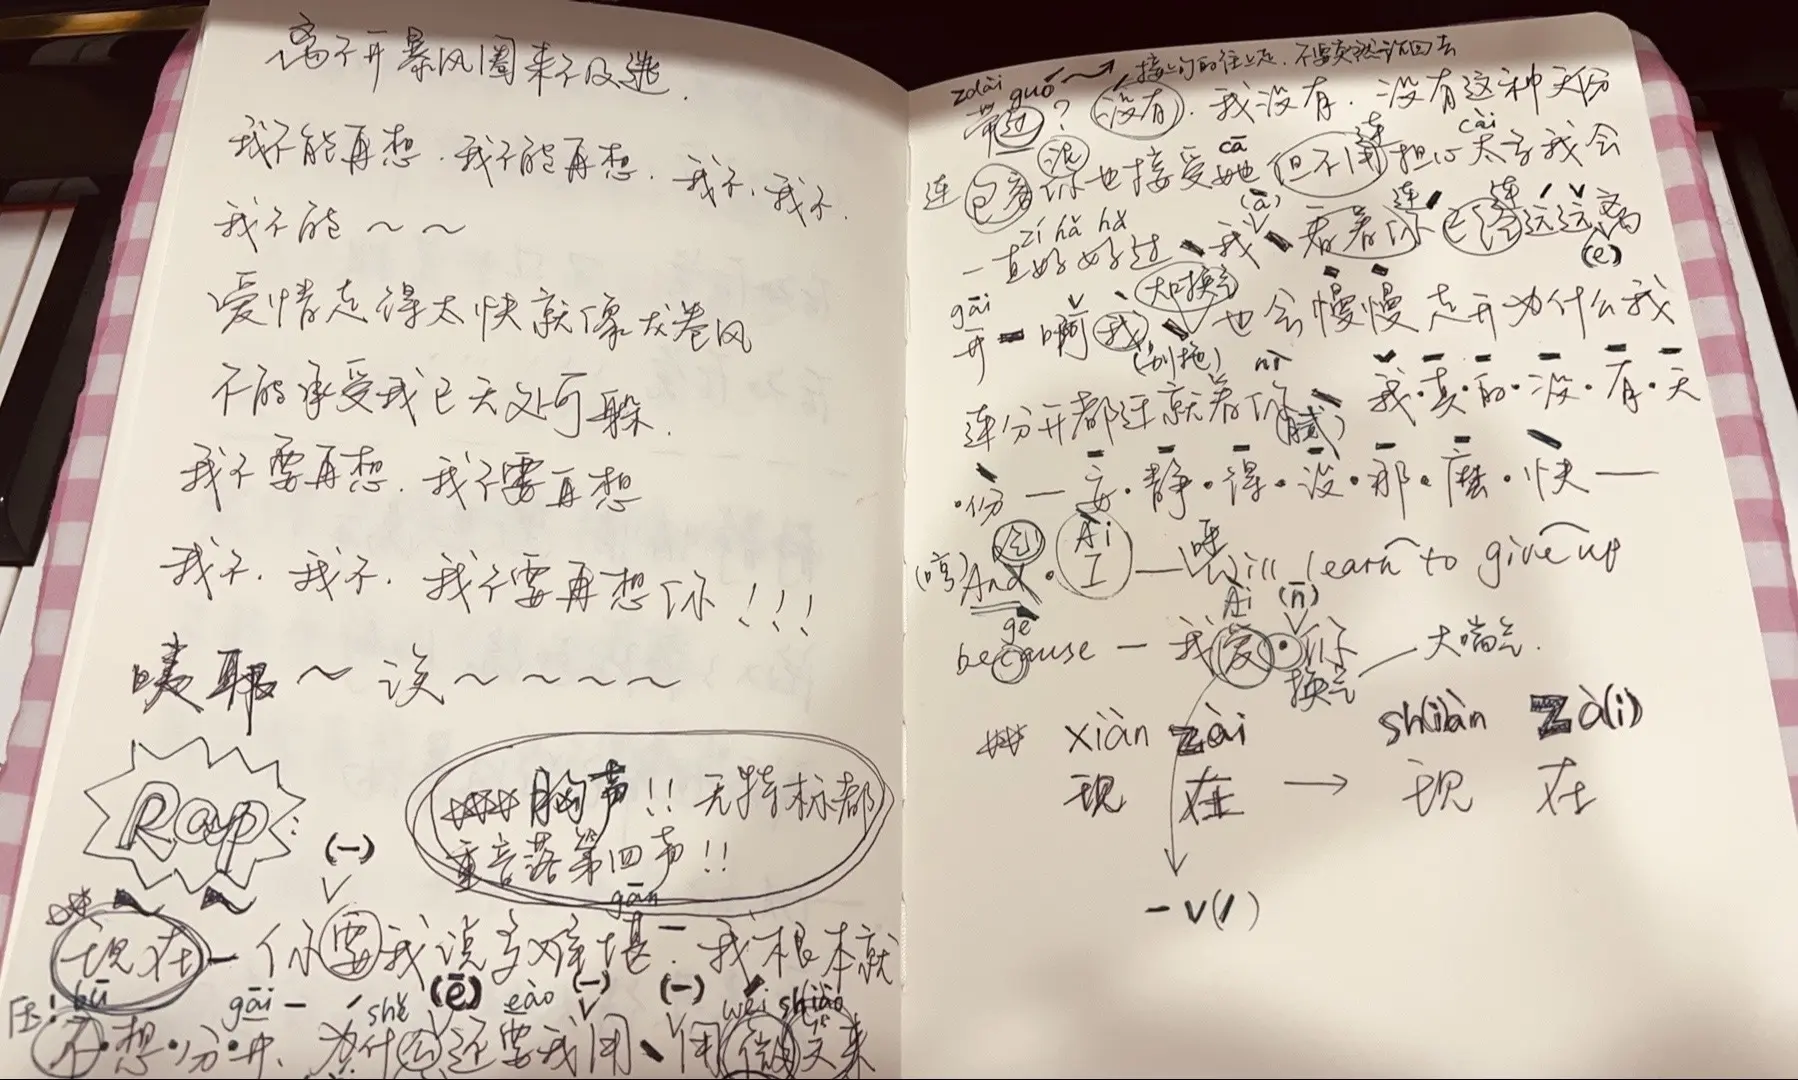 离不开暴风圈来不及逃.
我不能再想.我不能再想.我不.我不.
我不能～～
爱情走得太快就像龙卷风
不能承受我已无处可躲.
我不要再想.我不要再想
我不.我不.我不要再想你!!!
耶～诶～～～～
Rap
胸声!!无特标都
重音落第四声!!
(一)
gān
现在一你要我说多难堪.我根本就
压! bū gāi shě (ē) eào (一) (一) wēi shiào
不·想·分·开、为什么还要我用、用微笑来
接上句的往上走.不要突然說回去
zdài guó
带过?没有.我没有.没有这种天份
没 cā 连 cài
连包容你也接受她但不用担心太多我会
zí hǎ hǎ (ā) 连 连
一直好好过、我、看着你已经远远离
(e)
gāi 大口换气
开一啊我、也会慢慢走开为什么我
(别拖) nī
连分开都迁就着你 我·真·的·没·有·天
(腻)
·份—安·静·得·没·那·麼·快—
(哼)And·I—will learn to give up
Ai
gē Ai (n)
because—我爱·你 大喘气.
换气
xiàn zài sh(i)àn zà(i)
现 在 → 现 在
-v(/)